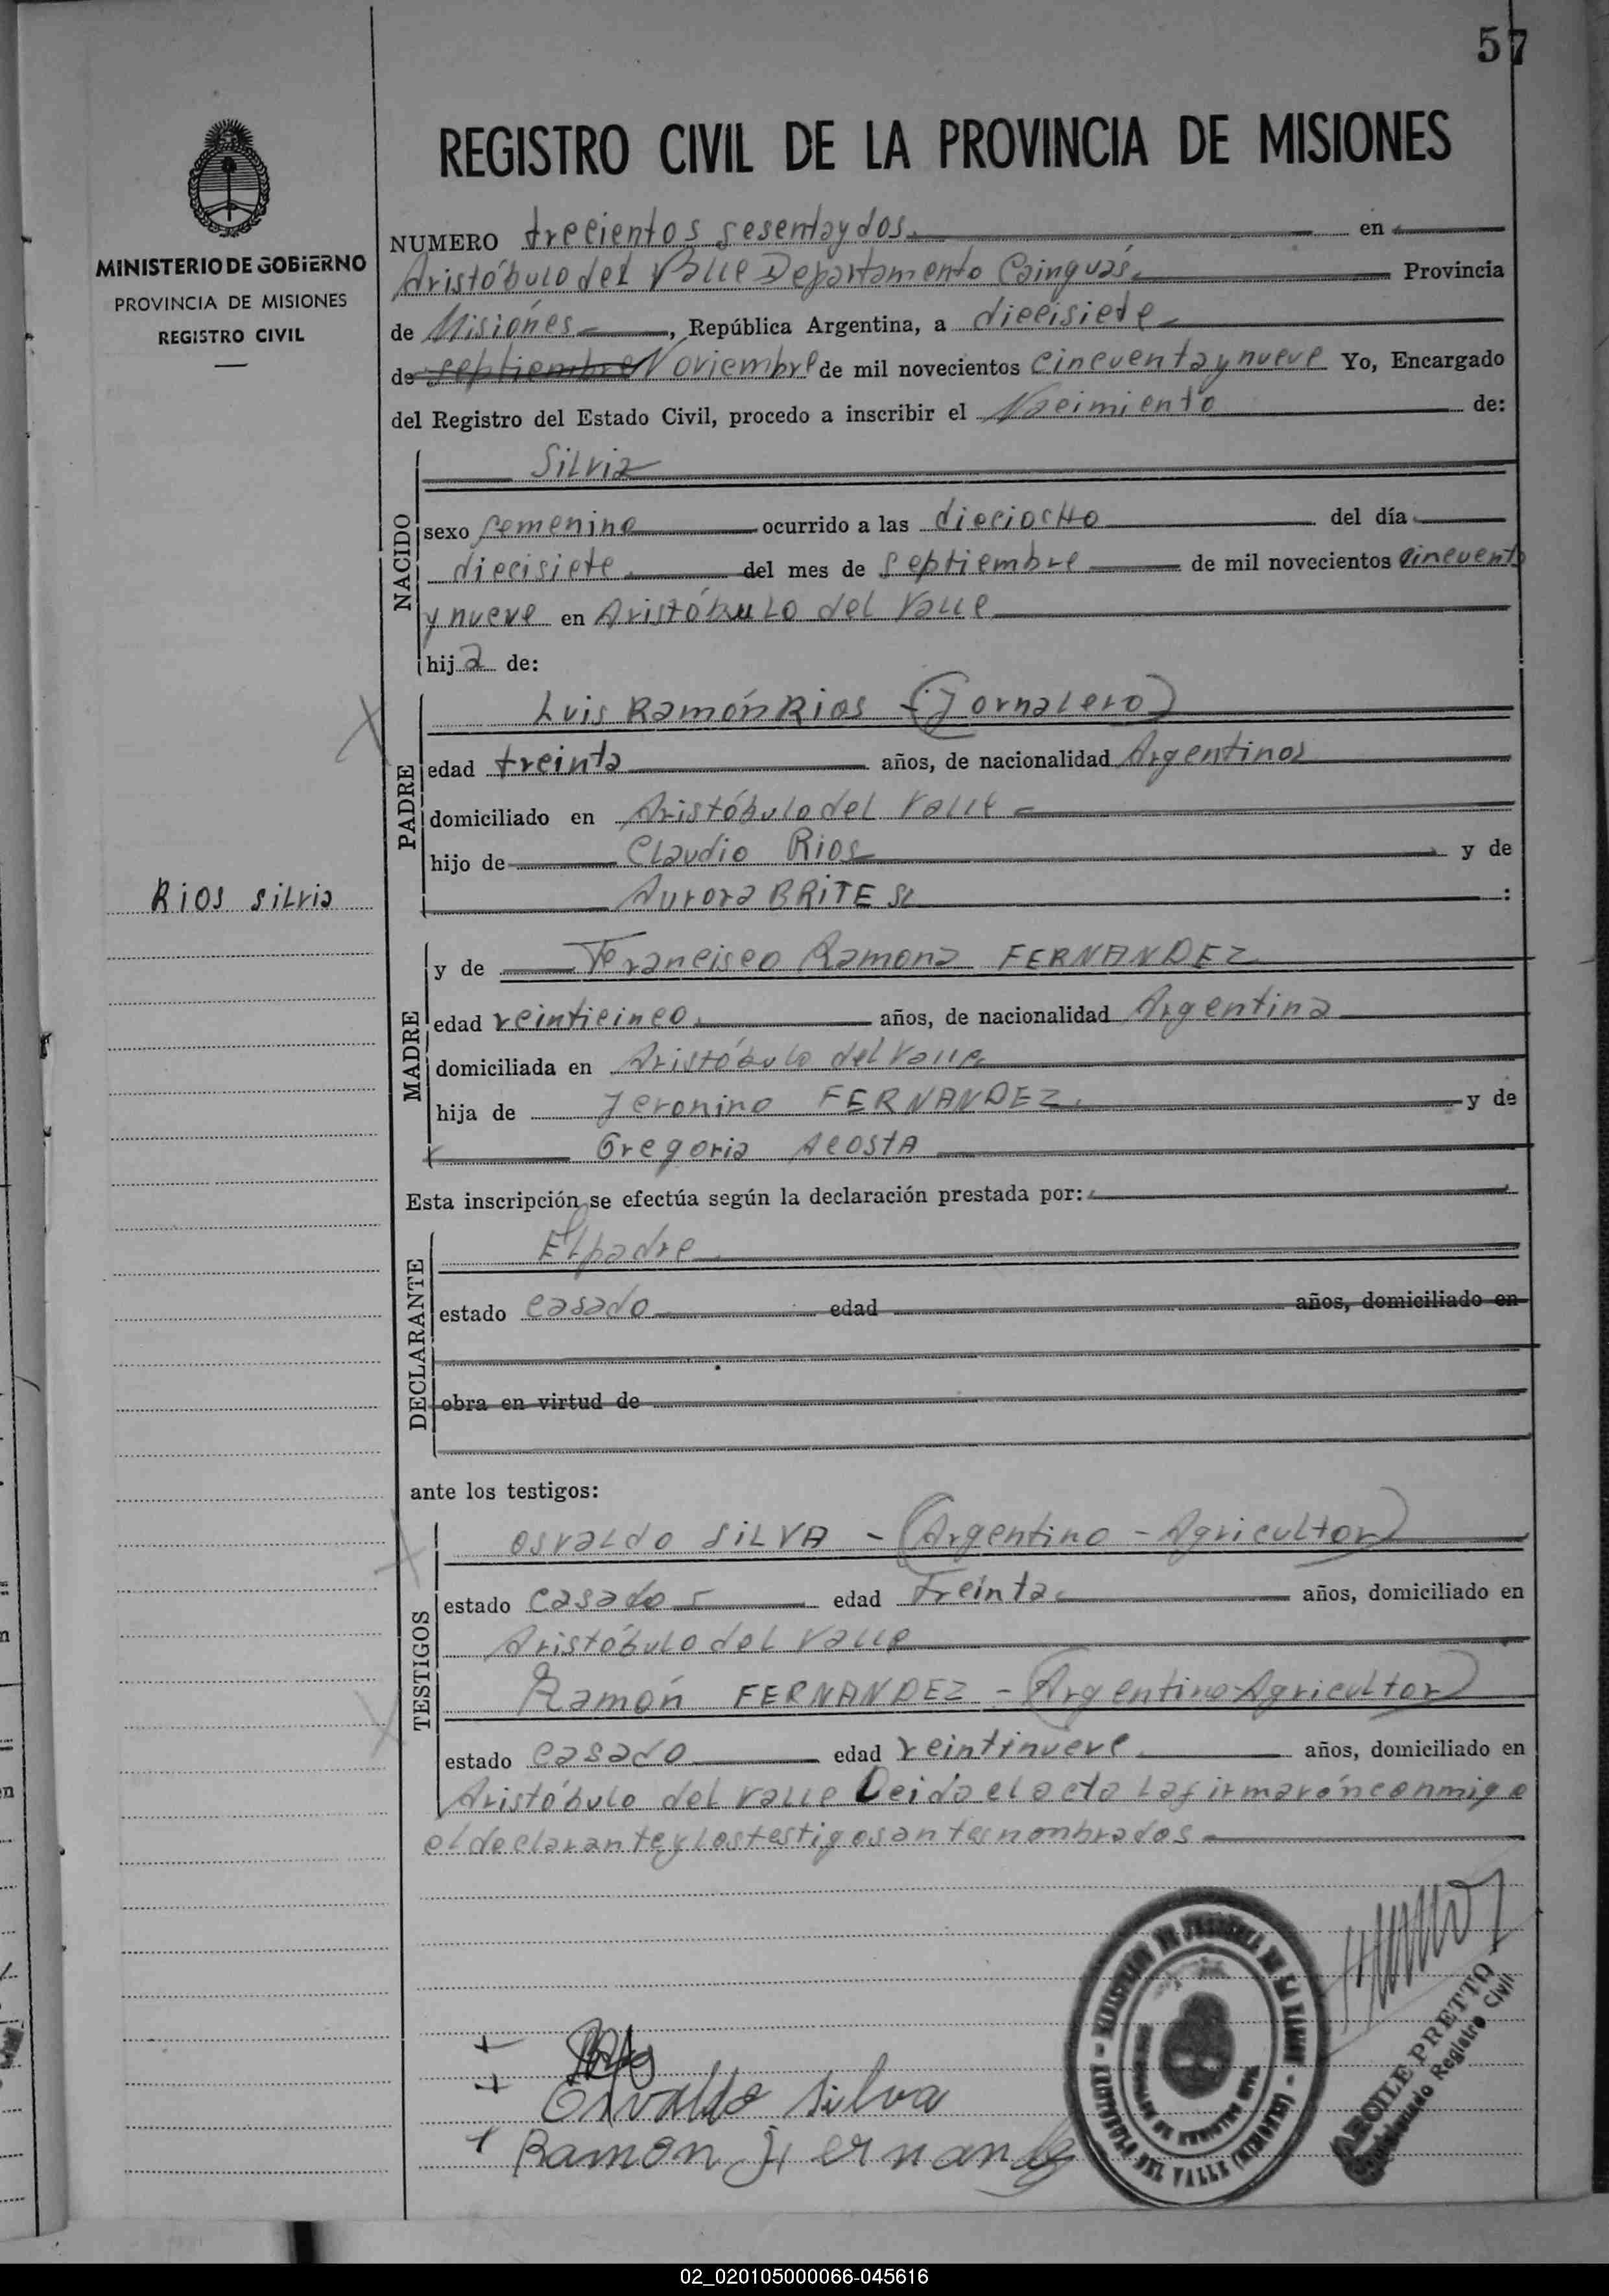 57
REGISTRO CIVIL DE LA PROVINCIA DE MISIONES
MINISTERIO DE GOBIERNO
PROVINCIA DE MISIONES
REGISTRO CIVIL
NUMERO trecientos sesentaydos en
Aristóbulo del Valle Departamento Cainguás Provincia
de Misiones, República Argentina, a diecisiete
de septiembre Noviembre de mil novecientos cincuenta y nueve Yo, Encargado
del Registro del Estado Civil, procedo a inscribir el Nacimiento de:
NACIDO
Silvia
sexo femenino ocurrido a las dieciocho del día
diecisiete del mes de septiembre de mil novecientos cincuenta
y nueve en Aristóbulo del Valle
hija de:
PADRE
Luis Ramón Rios - (Jornalero)
edad treinta años, de nacionalidad Argentinos
domiciliado en Aristóbulo del Valle
hijo de Claudio Rios y de
Aurora BRITES :
Rios Silvia
MADRE
y de Francisco Ramona FERNANDEZ
edad veinticinco años, de nacionalidad Argentina
domiciliada en Aristóbulo del Valle
hija de Jeronino FERNANDEZ y de
Gregoria Acosta
Esta inscripción se efectúa según la declaración prestada por:
DECLARANTE
El padre
estado casado edad años, domiciliado en
obra en virtud de
ante los testigos:
TESTIGOS
Osvaldo SILVA - (Argentino - Agricultor)
estado casado edad Treinta años, domiciliado en
Aristóbulo del Valle
Ramón FERNANDEZ - (Argentino-Agricultor)
estado casado edad veintinueve años, domiciliado en
Aristóbulo del Valle Leida el acta la firmarón conmigo
el declarante y los testigos antes nonbrados
Osvaldo Silva
Ramon Fernandez
ARCHILE PRETTO
Registro Civil
02_020105000066-045616